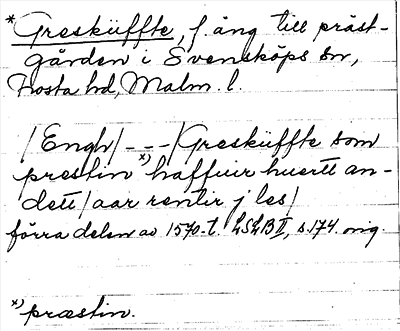 *Gresküffte, f. äng till präst-
gården i Svensköps sn,
Frosta hd, Malm. l.
/Engh/---/Gresküffte som
prestin *) haffuir huertt an-
dett/aar rentir j les/
förra delen av 1570-t. LSLB II, s. 174. orig.
*) præstin.